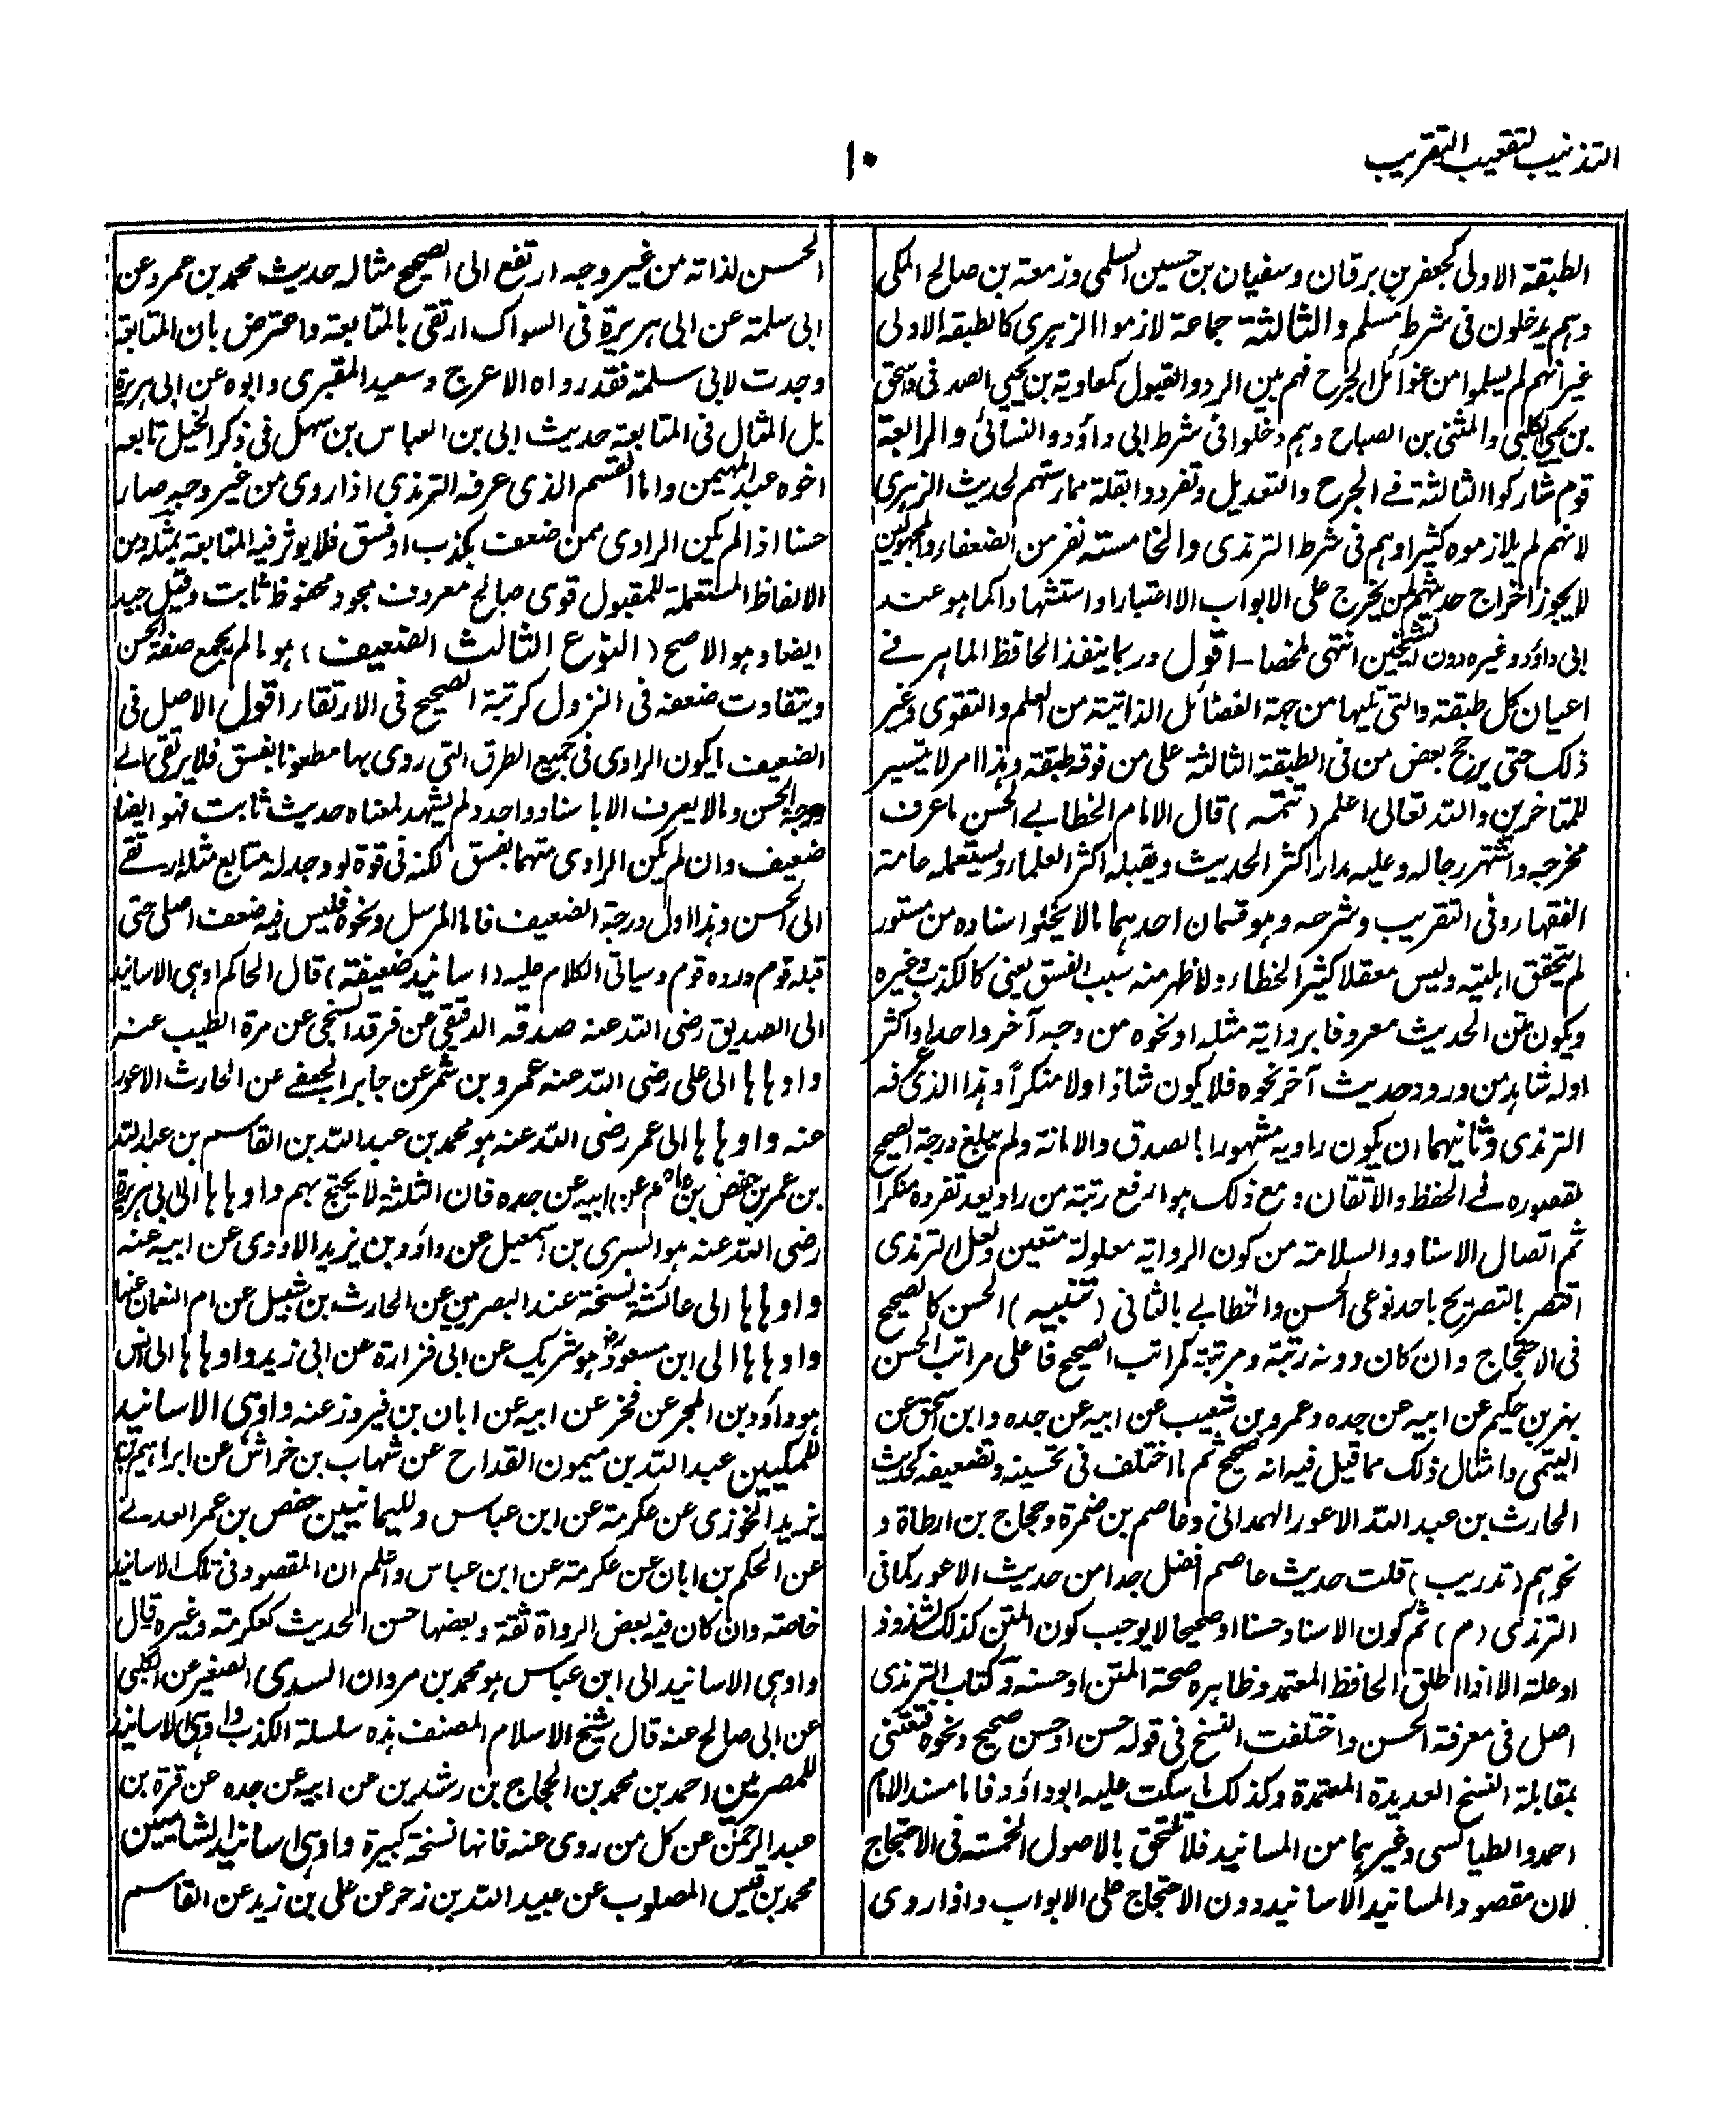 التذنيب لتعقيب التقريب
١٠
الطبقة الاولى كجعفر بن برقان وسفيان بن حسين السلمى وزمعة بن صالح المكى
وهم يدخلون فى شرط مسلم والثالثة جماعة لازموا الزهرى كالطبقة الاولى
غير انهم لم يسلموا من غوائل الجرح فهم بين الرد والقبول كمعاوية بن يحيى الصدفى واسحق
بن يحيى الكلبى والمثنى بن الصباح وهم دخلوا فى شرط ابى داؤد والنسائى والرابعة
قوم شاركوا الثالثة فى الجرح والتعديل وتفردوا بقلة ممارستهم لحديث الزهرى
لانهم لم يلازموه كثيرا وهم فى شرط الترمذى والخامسة نفر من الضعفاء والمجهولين
لا يجوز اخراج حديثهم لمن يخرج على الابواب الا اعتبارا واستشهادا كما هو عند
ابى داؤد وغيره دون الشيخين انتهى ملخصا - اقول وربما ينفذ الحافظ الماهر فى
اعيان كل طبقة والتى تليها من جهة الفضائل الذاتية من العلم والتقوى وغير
ذلك حتى يرجح بعض من فى الطبقة الثالثة على من فوقه طبقة وهذا امر لا يتيسر
للمتاخرين والله تعالى اعلم (تتمه) قال الامام الخطابى الحسن ما عرف
مخرجه واشتهر رجاله وعليه مدار اكثر الحديث ويقبله اكثر العلماء ويستعمله عامة
الفقهاء وفى التقريب وشرحه وهو قسمان احدهما ما لا يخلو اسناده من مستور
لم تتحقق اهليته وليس مغفلا كثير الخطاء ولا ظهر منه سبب الفسق يعنى كالكذب وغيره
ويكون متن الحديث معروفا برواية مثله او نحوه من وجه آخر واحد او اكثر
اوله شاهد من ورود حديث آخر نحوه فلا يكون شاذا ولا منكراً وهذا الذى عرفه
الترمذى وثانيهما ان يكون راويه مشهورا بالصدق والامانة ولم يبلغ درجة الصحيح
لقصوره فى الحفظ والاتقان ومع ذلك هو ارفع رتبة من راو يعد تفرده منكرا
ثم اتصال الاسناد والسلامة من كون الرواية معلولة متعين ولعل الترمذى
اقتصر بالتصريح باحد نوعى الحسن والخطابى بالثانى (تنبيه) الحسن كالصحيح
فى الاحتجاج وان كان دونه رتبة ومرتبة كمراتب الصحيح فاعلى مراتب الحسن
بهز بن حكيم عن ابيه عن جده وعمرو بن شعيب عن ابيه عن جده وابن اسحق عن
التيمى وامثال ذلك مما قيل فيه انه صحيح ثم ما اختلف فى تحسينه وتضعيفه كحديث
الحارث بن عبد الله الاعور الهمدانى وعاصم بن ضمرة وحجاج بن ارطاة و
نحوهم (تدريب) قلت حديث عاصم افضل جدا من حديث الاعور كما فى
الترمذى (م) ثم كون الاسناد حسنا او صحيحا لا يوجب كون المتن كذلك لشذوذ
او علة الا اذا اطلق الحافظ المعتمد وظاهره صحة المتن او حسنه وكتاب الترمذى
اصل فى معرفة الحسن واختلفت النسخ فى قوله حسن او حسن صحيح ونحوه فتعتنى
بمقابلة النسخ العديدة المعتمدة وكذلك ما سكت عليه ابو داؤد فاما مسند الامام
احمد والطيالسى وغيرهما من المسانيد فلا تلتحق بالاصول الخمسة فى الاحتجاج
لان مقصود المسانيد الاسانيد دون الاحتجاج على الابواب واذا روى
الحسن لذاته من غير وجه ارتفع الى الصحيح مثاله حديث محمد بن عمرو عن
ابى سلمة عن ابى هريرة فى السواك ارتقى بالمتابعة واعترض بان المتابعة
وجدت لابى سلمة فقد رواه الاعرج وسعيد المقبرى وابوه عن ابى هريرة
بل المثال فى المتابعة حديث ابى بن العباس بن سهل فى ذكر الخيل تابعه
اخوه عبد المهيمن واما القسم الذى عرفه الترمذى اذا روى من غير وجه صار
حسنا اذا لم يكن الراوى ممن ضعف بكذب او فسق فلا يوثر فيه المتابعة بمثله ومن
الالفاظ المستعملة للمقبول قوى صالح معروف مجود محفوظ ثابت وقيل جيد
ايضا وهو الاصح (النوع الثالث الضعيف) هو ما لم يجمع صفة الحسن
ويتفاوت ضعفه فى النزول كرتبة الصحيح فى الارتقاء اقول الاصل فى
الضعيف ما يكون الراوى فى جميع الطرق التى روى بها مطعونا بفسق فلا يرتقى الى
درجة الحسن وما لا يعرف الا باسناد واحد ولم يشهد لمعناه حديث ثابت فهو ايضا
ضعيف وان لم يكن الراوى متهما بفسق لكنه فى قوة لو وجد له متابع مثله ارتقى
الى الحسن وهذا اول درجة الضعيف فاما المرسل ونحوه فليس فيه ضعف اصلى حتى
قبله قوم ورده قوم وسياتى الكلام عليه (اسانيد ضعيفة) قال الحاكم اوهى الاسانيد
الى الصديق رضى الله عنه صدقه الدقيقى عن فرقد السبخى عن مرة الطيب عنه
واوهاها الى على رضى الله عنه عمرو بن شمر عن جابر الجعفى عن الحارث الاعور
عنه واوهاها الى عمر رضى الله عنه هو محمد بن عبد الله بن القاسم بن عبد الله
بن عمر بن حفص بن عاصم عن ابيه عن جده فان الثلثة لا يحتج بهم واوهاها الى ابى هريرة
رضى الله عنه هو السرى بن اسمعيل عن داؤد بن يزيد الاودى عن ابيه عنه
واوهاها الى عائشة نسخة عند البصريين عن الحارث بن شبيل عن ام النعمان عنها
واوهاها الى ابن مسعود هو شريك عن ابى فزارة عن ابى زيد واوهاها الى انس
هو داؤد بن المجر عن فخر عن ابيه عن ابان بن فيروز عنه واوهى الاسانيد
للمكيين عبد الله بن ميمون القداح عن شهاب بن خراش عن ابراهيم بن
يزيد الخوزى عن عكرمة عن ابن عباس ولليمانيين حفص بن عمر العدنى
عن الحكم بن ابان عن عكرمة عن ابن عباس واعلم ان المقصود فى تلك الاسانيد
خاصة وان كان فيه بعض الرواة ثقة وبعضها حسن الحديث كعكرمة وغيره قال
واوهى الاسانيد الى ابن عباس هو محمد بن مروان السدى الصغير عن الكلبى
عن ابى صالح عنه قال شيخ الاسلام المصنف هذه سلسلة الكذب واوهى الاسانيد
للمصريين احمد بن محمد بن الحجاج بن رشدين عن ابيه عن جده عن قرة بن
عبد الرحمن عن كل من روى عنه فانها نسخة كبيرة واوهى اسانيد الشاميين
محمد بن قيس المصلوب عن عبيد الله بن زحر عن على بن زيد عن القاسم